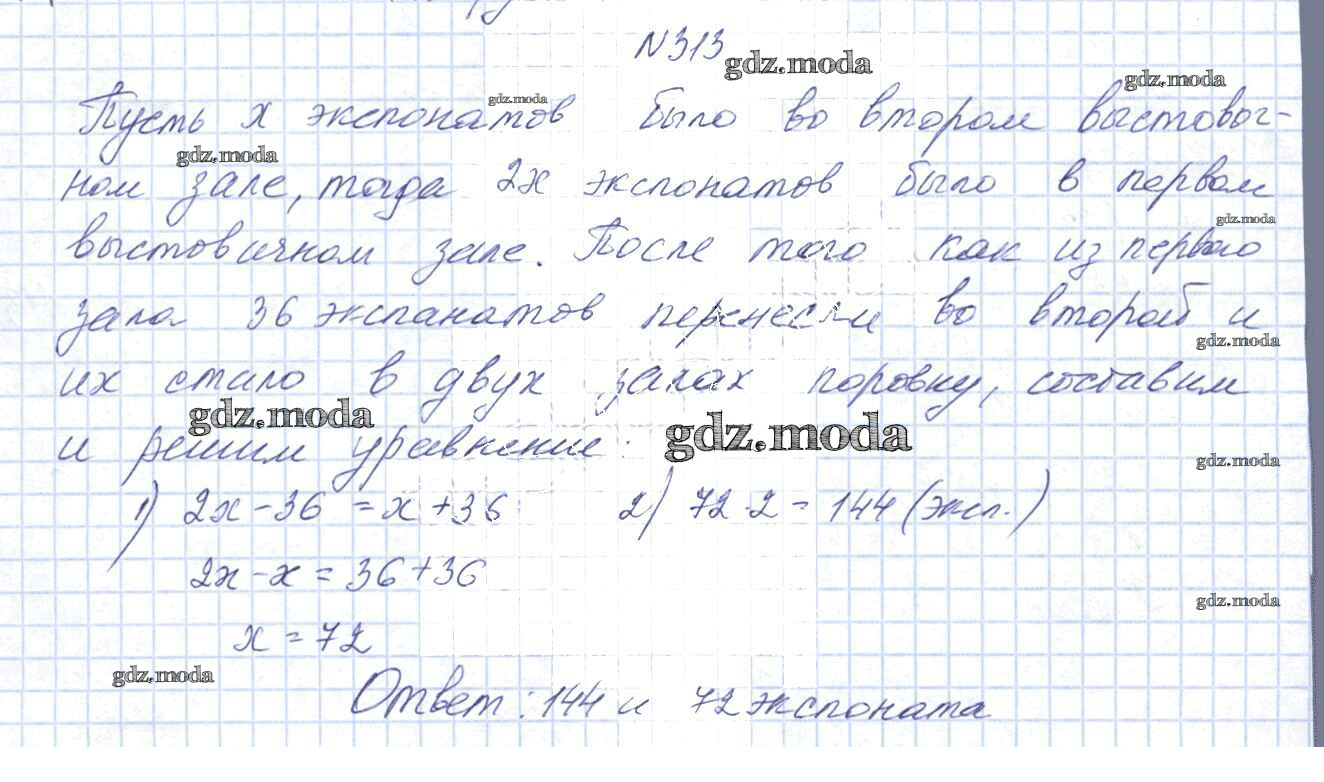 N313
Пусть х экспонатов было во втором выстовоч-
ном зале, тогда 2х экспонатов было в первом
выстовичном зале. После того как из первого
зала 36 экспанатов перенесли во второй и
их стало в двух залах поровну, составим
и решим уравнение:
1) 2х - 36 = х + 36 2) 72 · 2 = 144 (эксп.)
2х - х = 36 + 36
х = 72
Ответ: 144 и 72 экспоната
gdz.moda
gdz.moda
gdz.moda
gdz.moda
gdz.moda
gdz.moda
gdz.moda
gdz.moda
gdz.moda
gdz.moda
gdz.moda